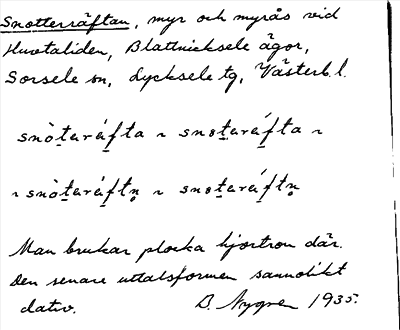 Snotterräftan, myr och myrås vid
Huvetaliden, Blattnicksele ägor,
Sorsele sn, Lycksele tg, Västerb. l.
snòt̲aráf̲ta ~ snot̲aráf̲ta ~
~ snòt̲aráf̲tn̥ ~ snot̲aráf̲tn̥
Man brukar plocka hjortron där.
Den senare uttalsformen sannolikt
dativ. D. Nygren 1935.